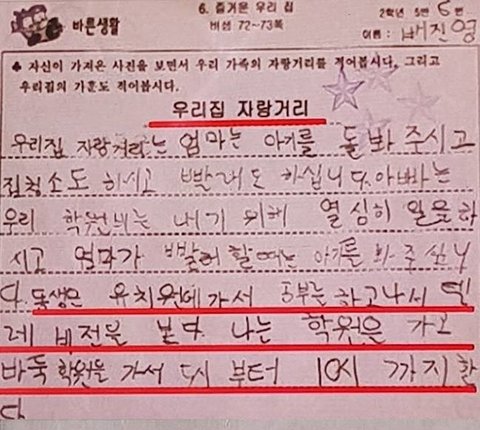 바른생활
6. 즐거운 우리 집
버섯 72~73쪽
2학년 5반 6번
이름: 배진영
자신이 가져온 사진을 보면서 우리 가족의 자랑거리를 적어봅시다. 그리고
우리집의 가훈도 적어봅시다.
우리집 자랑거리
우리집 자랑거리는 엄마는 아기를 돌봐 주시고
집청소도 하시고 빨래도 하십니다. 아빠는
우리 학원비는 내기 위해 열심히 일을 하
시고 엄마가 빨래 할때는 아기를 봐 주십니
다. 동생은 유치원에 가서 공부를 하고나서 텔
레비전을 본다. 나는 학원을 가고
바둑학원을 가서 다시 부터 10시 까지 한
다.